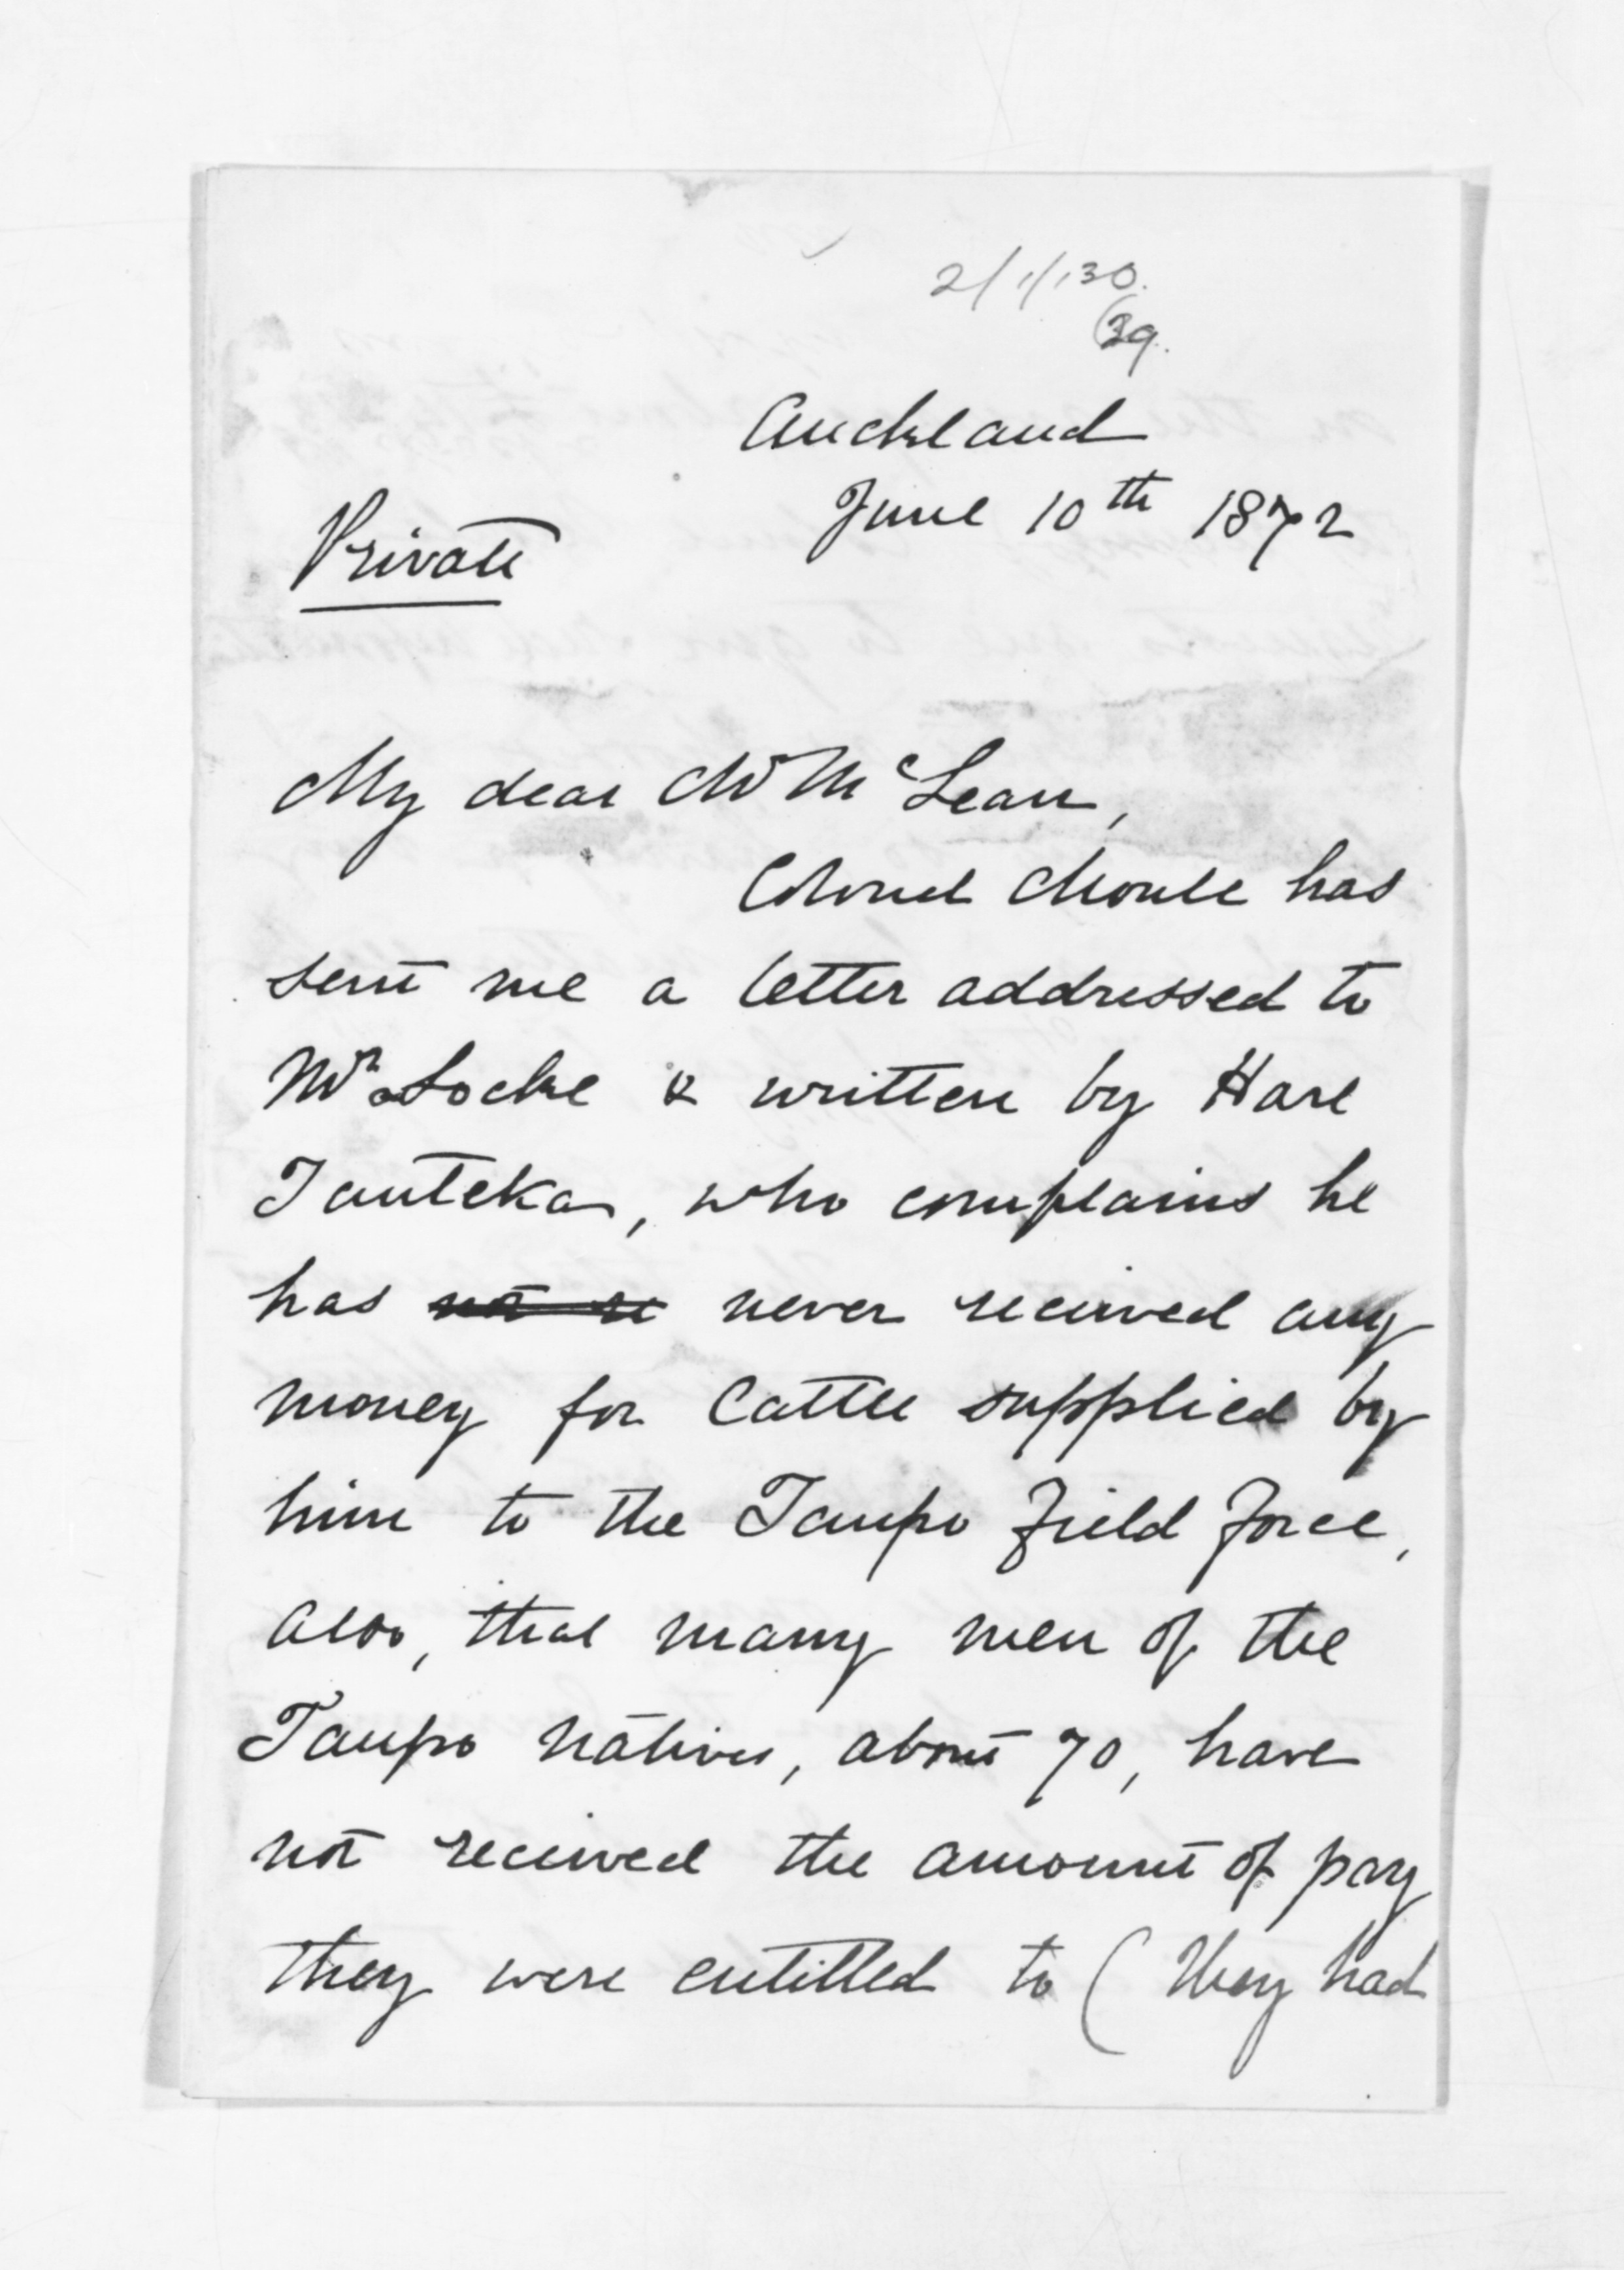 2/1/130.
(39.
Auckland
June 10th 1872
Private
My dear Mr McLean,
Colonel Moule has
sent me a letter addressed to
Mr Locke & written by Hare
Tauteka, who complains he
has not re never received any
money for Cattle supplied by
him to the Taupo Field Force,
also, that many men of the
Taupo natives, about 70, have
not received the amount of pay
they were entitled to (They had